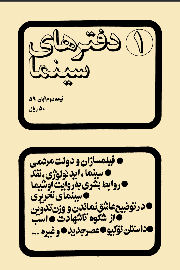 ۱
دفترهای
سینما
نیمه دوم آبان ۵۹
۵۰ ریال
● فیلمسازان و دولت مردمی
● سینما، ایدئولوژی، نقد
● روابط بشری به روایت اوشیما
● سینمای تحریری
● در توضیح عاشق نماندن و وزن تدوین
● از شکوه تا شهادت ● اسب
● داستان توکیو ● عصر جدید ● و غیره ...